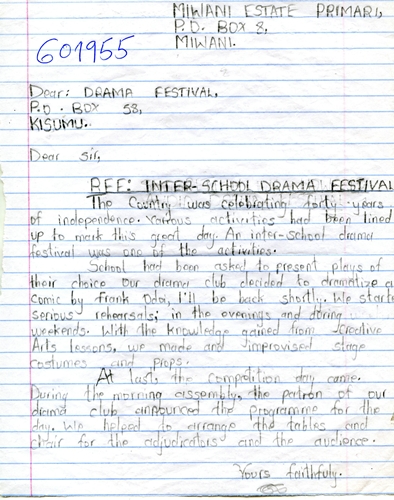 MIWANI ESTATE PRIMARI,
P.O. BOX 8,
MIWANI.
601955
Dear: DRAMA FESTIVAL,
P.O. BOX 58,
KISUMU.
Dear Sir,
REF: INTER-SCHOOL DRAMA FESTIVAL
The Country was celebrating forty years
of independence. Various activities had been lined
up to mark this great day. An inter-school drama
festival was one of the activities.
School had been asked to present plays of
their choice Our drama club decided to dramatize a
Comic by Frank Odoi, I'll be back shortly. We starte
serious rehearsals; in the evenings and during
weekends. With the knowledge gained from Creative
Arts lessons, we made and improvised stage
costumes and props.
At last, the competition day came.
During the morning assembly, the patron of our
drama club announced the programme for the
day. We helped to arrange the tables and
chair for the adjudicators and the audience.
Yours faithfuly.